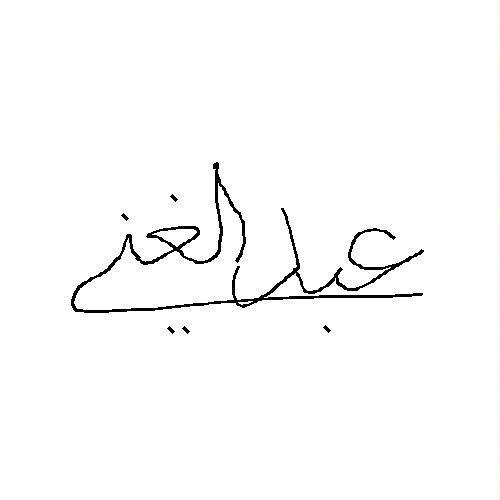 عبد الغني